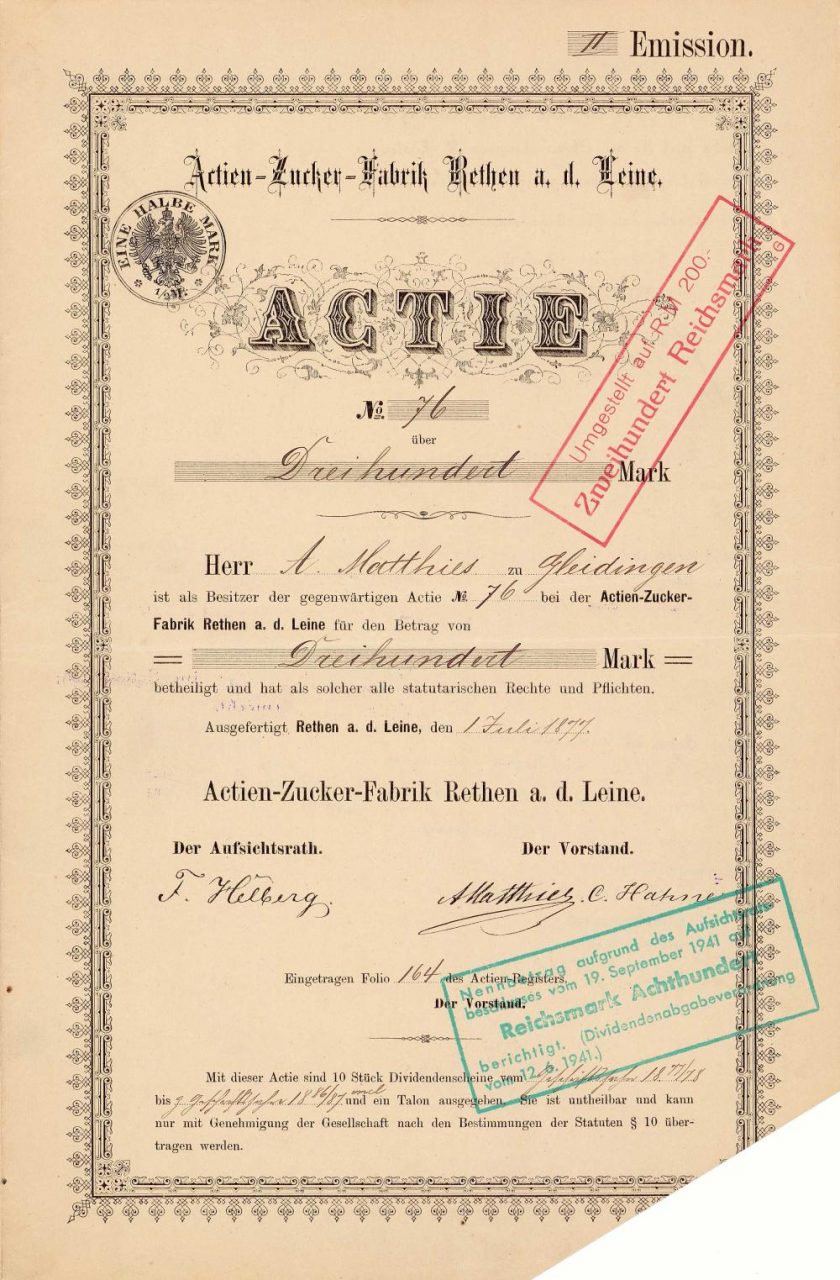 II Emission.
Actien-Zucker-Fabrik Rethen a. d. Leine.
EINE HALBE MARK
1/2 M.
ACTIE
Umgestellt auf R-M 200.-
Zweihundert Reichsmark
G
No. 76
über
Dreihundert Mark
Herr A. Matthies zu Gleidingen
ist als Besitzer der gegenwärtigen Actie No. 76 bei der Actien-Zucker-
Fabrik Rethen a. d. Leine für den Betrag von
Dreihundert Mark
betheiligt und hat als solcher alle statutarischen Rechte und Pflichten.
Ausgefertigt Rethen a. d. Leine, den 1 Juli 1877.
Actien-Zucker-Fabrik Rethen a. d. Leine.
Der Aufsichtsrath. Der Vorstand.
F. Helberg. AMatthies. C. Hahne
Eingetragen Folio 164 des Actien-Registers.
Der Vorstand.
Nennbetrag aufgrund des Aufsichtsrats-
beschlusses vom 19. September 1941 auf
Reichsmark Achthundert
berichtigt. (Dividendenabgabeverordnung
vom 12.6.1941.)
Mit dieser Actie sind 10 Stück Dividendenscheine vom Geschäftsjahr 1877/78
bis z. Geschäftsjahr 1886/87 incl und ein Talon ausgegeben. Sie ist untheilbar und kann
nur mit Genehmigung der Gesellschaft nach den Bestimmungen der Statuten § 10 über-
tragen werden.